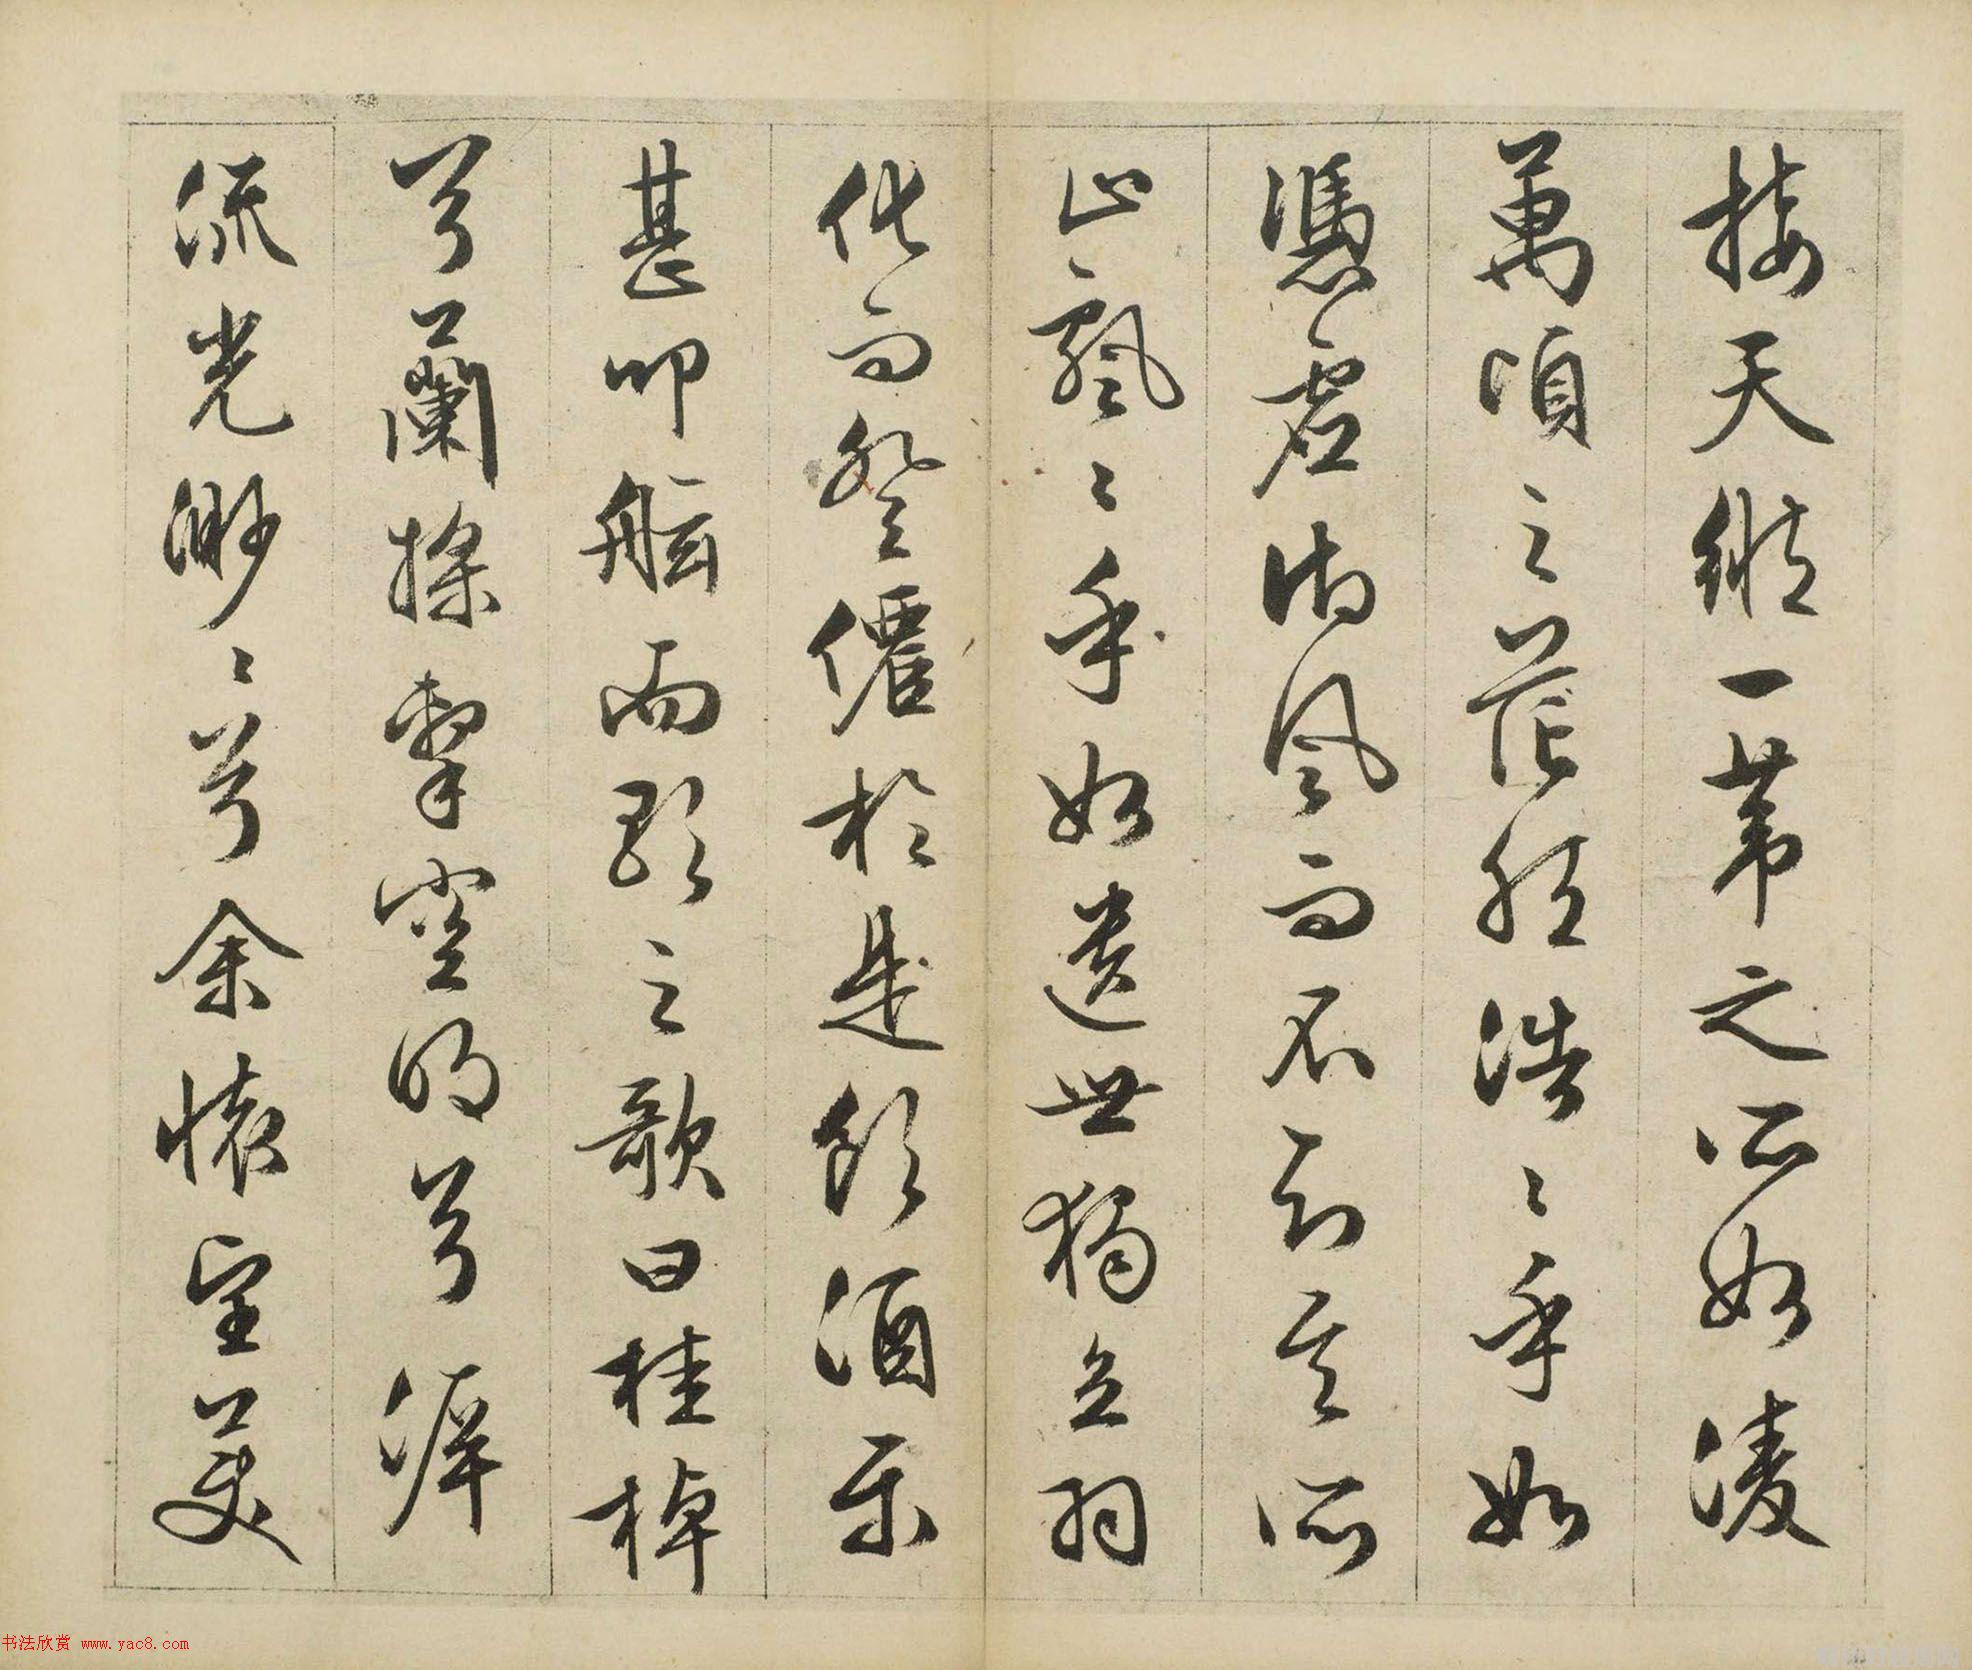 接天縱一葦之所如淩
萬頃之茫然浩〻乎如
憑虛御風而不知其所
止飄〻乎如遺世獨立羽
化而登僊於是飲酒樂
甚叩舷而歌之歌曰桂棹
兮蘭槳擊空明兮泝
流光渺〻兮余懷望美
书法欣赏 www.yac8.com